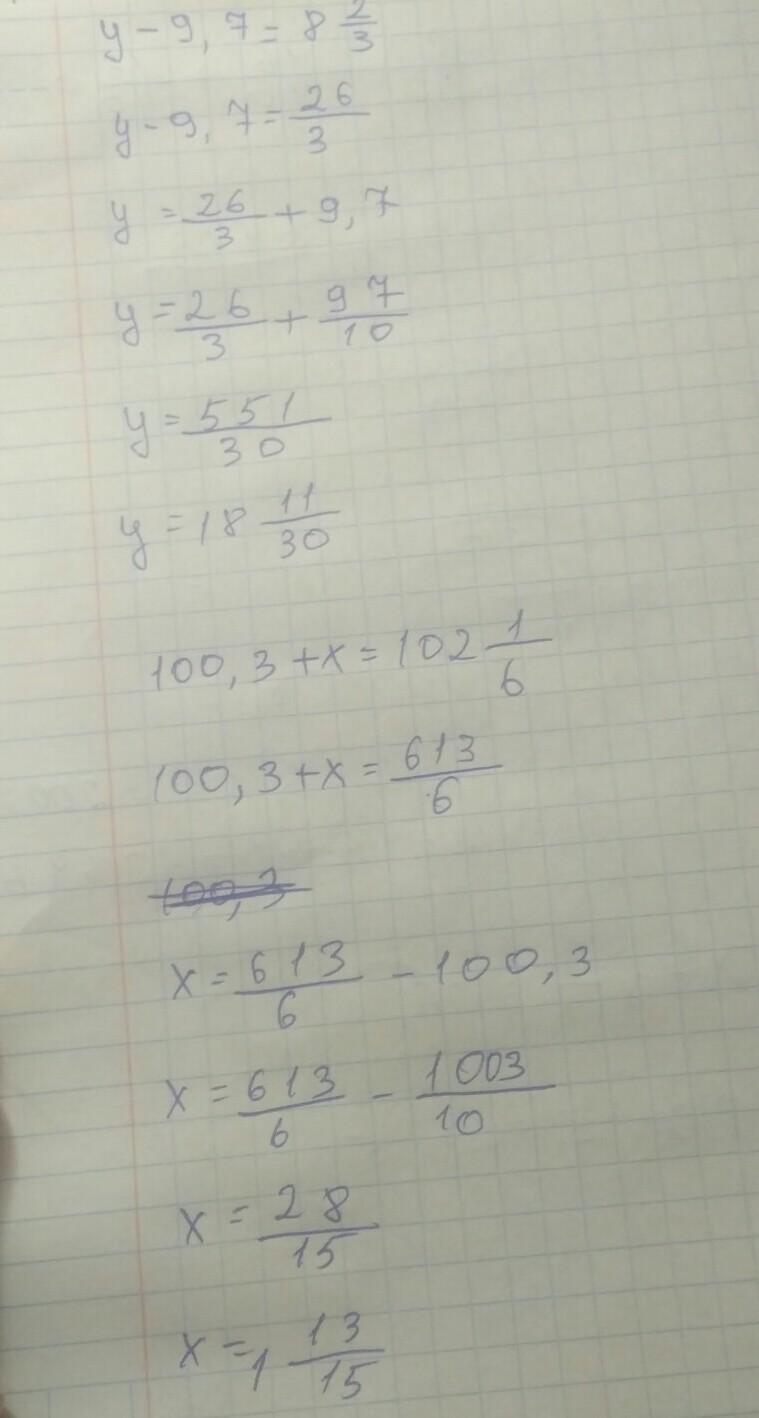 y - 9,7 = 8 2/3
y - 9,7 = 26/3
y = 26/3 + 9,7
y = 26/3 + 97/10
y = 551/30
y = 18 11/30
100,3 + x = 102 1/6
100,3 + x = 613/6
100,3
x = 613/6 - 100,3
x = 613/6 - 1003/10
x = 28/15
x = 1 13/15